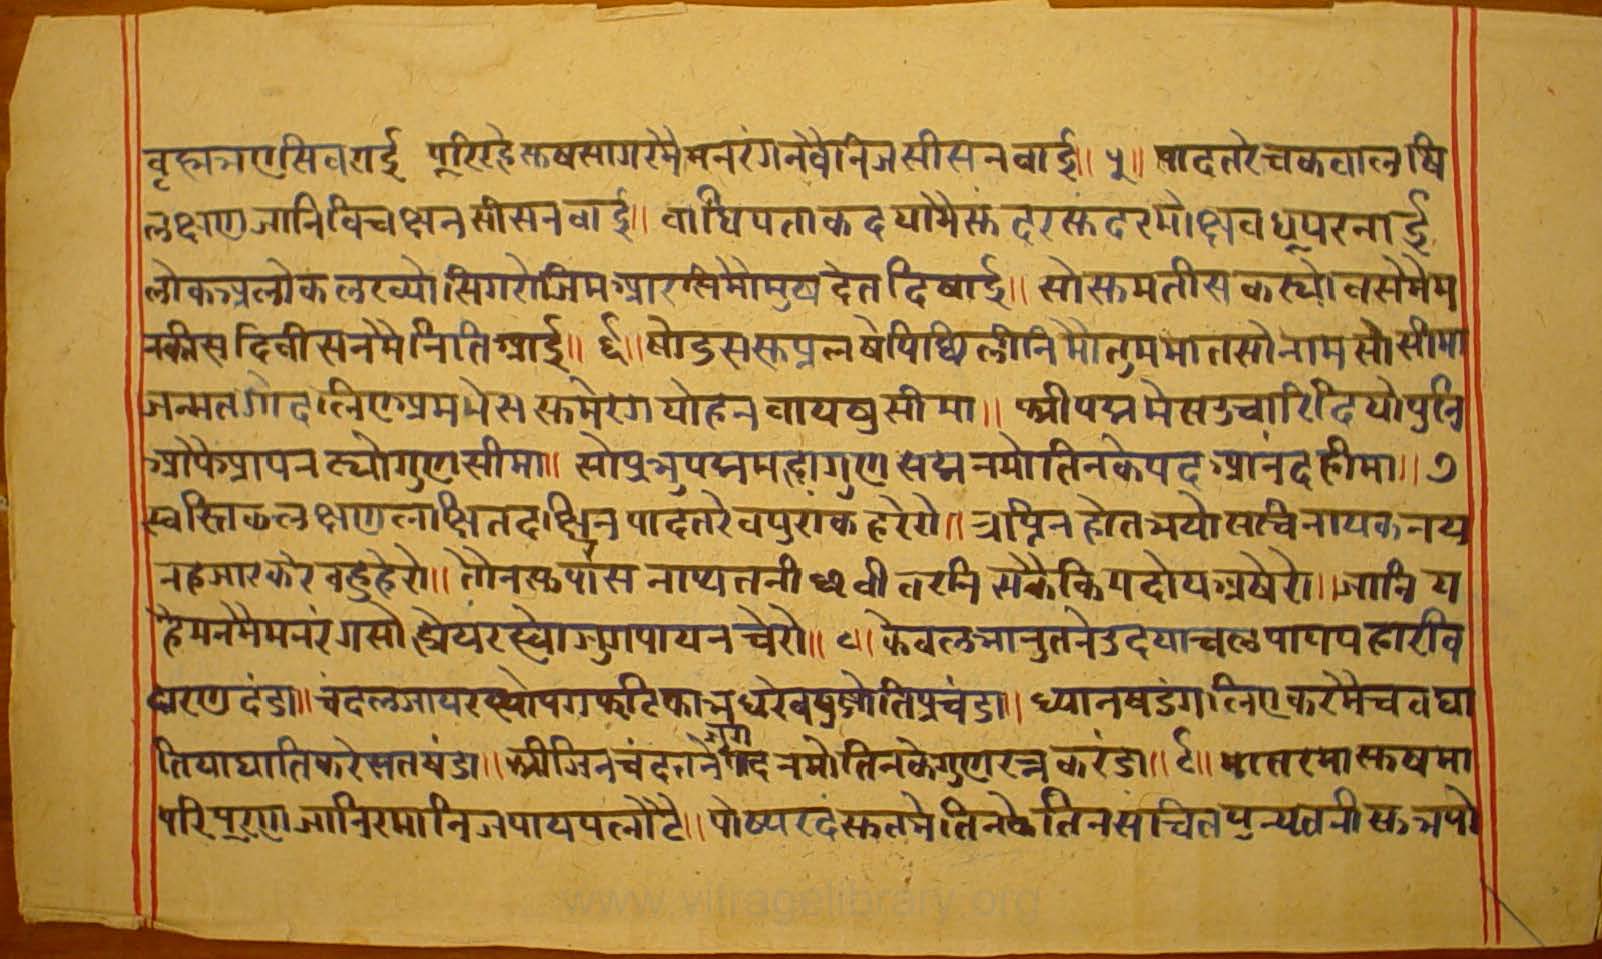 वृह्मत्रणसिवराई पूरिरहेसुषसागरमैमनरंगनवैनिजसीसनवाई॥५॥ पादतरेचकवालषि
लक्षणजानिविचक्षनसीसनवाई॥ वाधिपताकदयामैसुंदरसुंदरमोक्षवधूपरनाई
लोकअलोकलख्योसिगरोजिमआरसिमैमुषदेतदिषाई॥ सोसुमतीसकस्योवसेमैम
नकीसदिवीसनमैनितिआई॥६॥ षोडससुप्नलषेपिछिलीनिमैतुममातसोनामसोसीमा
जन्मतगोदलिएप्रममेससुमेरगयोहनवायषुसीमा॥ श्रीपद्ममेसउचारिदियोपुनि
औफैआपनल्योगुणसीमा॥ सोप्रभुपद्ममहागुणसद्मनमोतिनकेपदआनंदहीमा॥७
स्वस्तिकलक्षणलाक्षितदक्षिनपादतरेवपुरांकहरेगे॥ त्रप्तिनहोतभयोसचिनायकनय
नहजारकरेवहुहेरो॥ तौनसुर्पासनाथतनीछवीवरनिसकैकिमदोयअषेरो॥ जानिय
हैमनमैमनरंगसोध्येयरस्योजुगपायनचेरो॥८॥ केवलभानुतनेउदयाचलपापपहारवि
दारणदंडा॥ चंदलजायरस्योपगफटिकाभधरेवपुजोतिप्रचंडा॥ ध्यानषडंगलिएकरमैचवघा
तियाघातिकरेसतषंडा॥ श्रीजिनचंदतनेजुगपादनमोतिनकेगुणरत्नकरंडा॥९॥ मातरमासुषमा
परिपूरणजानिरमानिजपायपलोटै॥ पोष्परदंसुतनेतिनकेतिनसंचितपुन्यवनीसुभपो
www.vitragelibrary.org